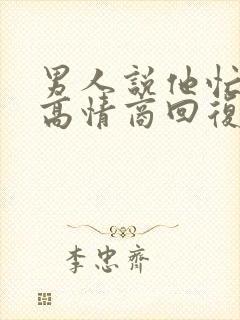 男人說他忙
高情商回復
李忠齊